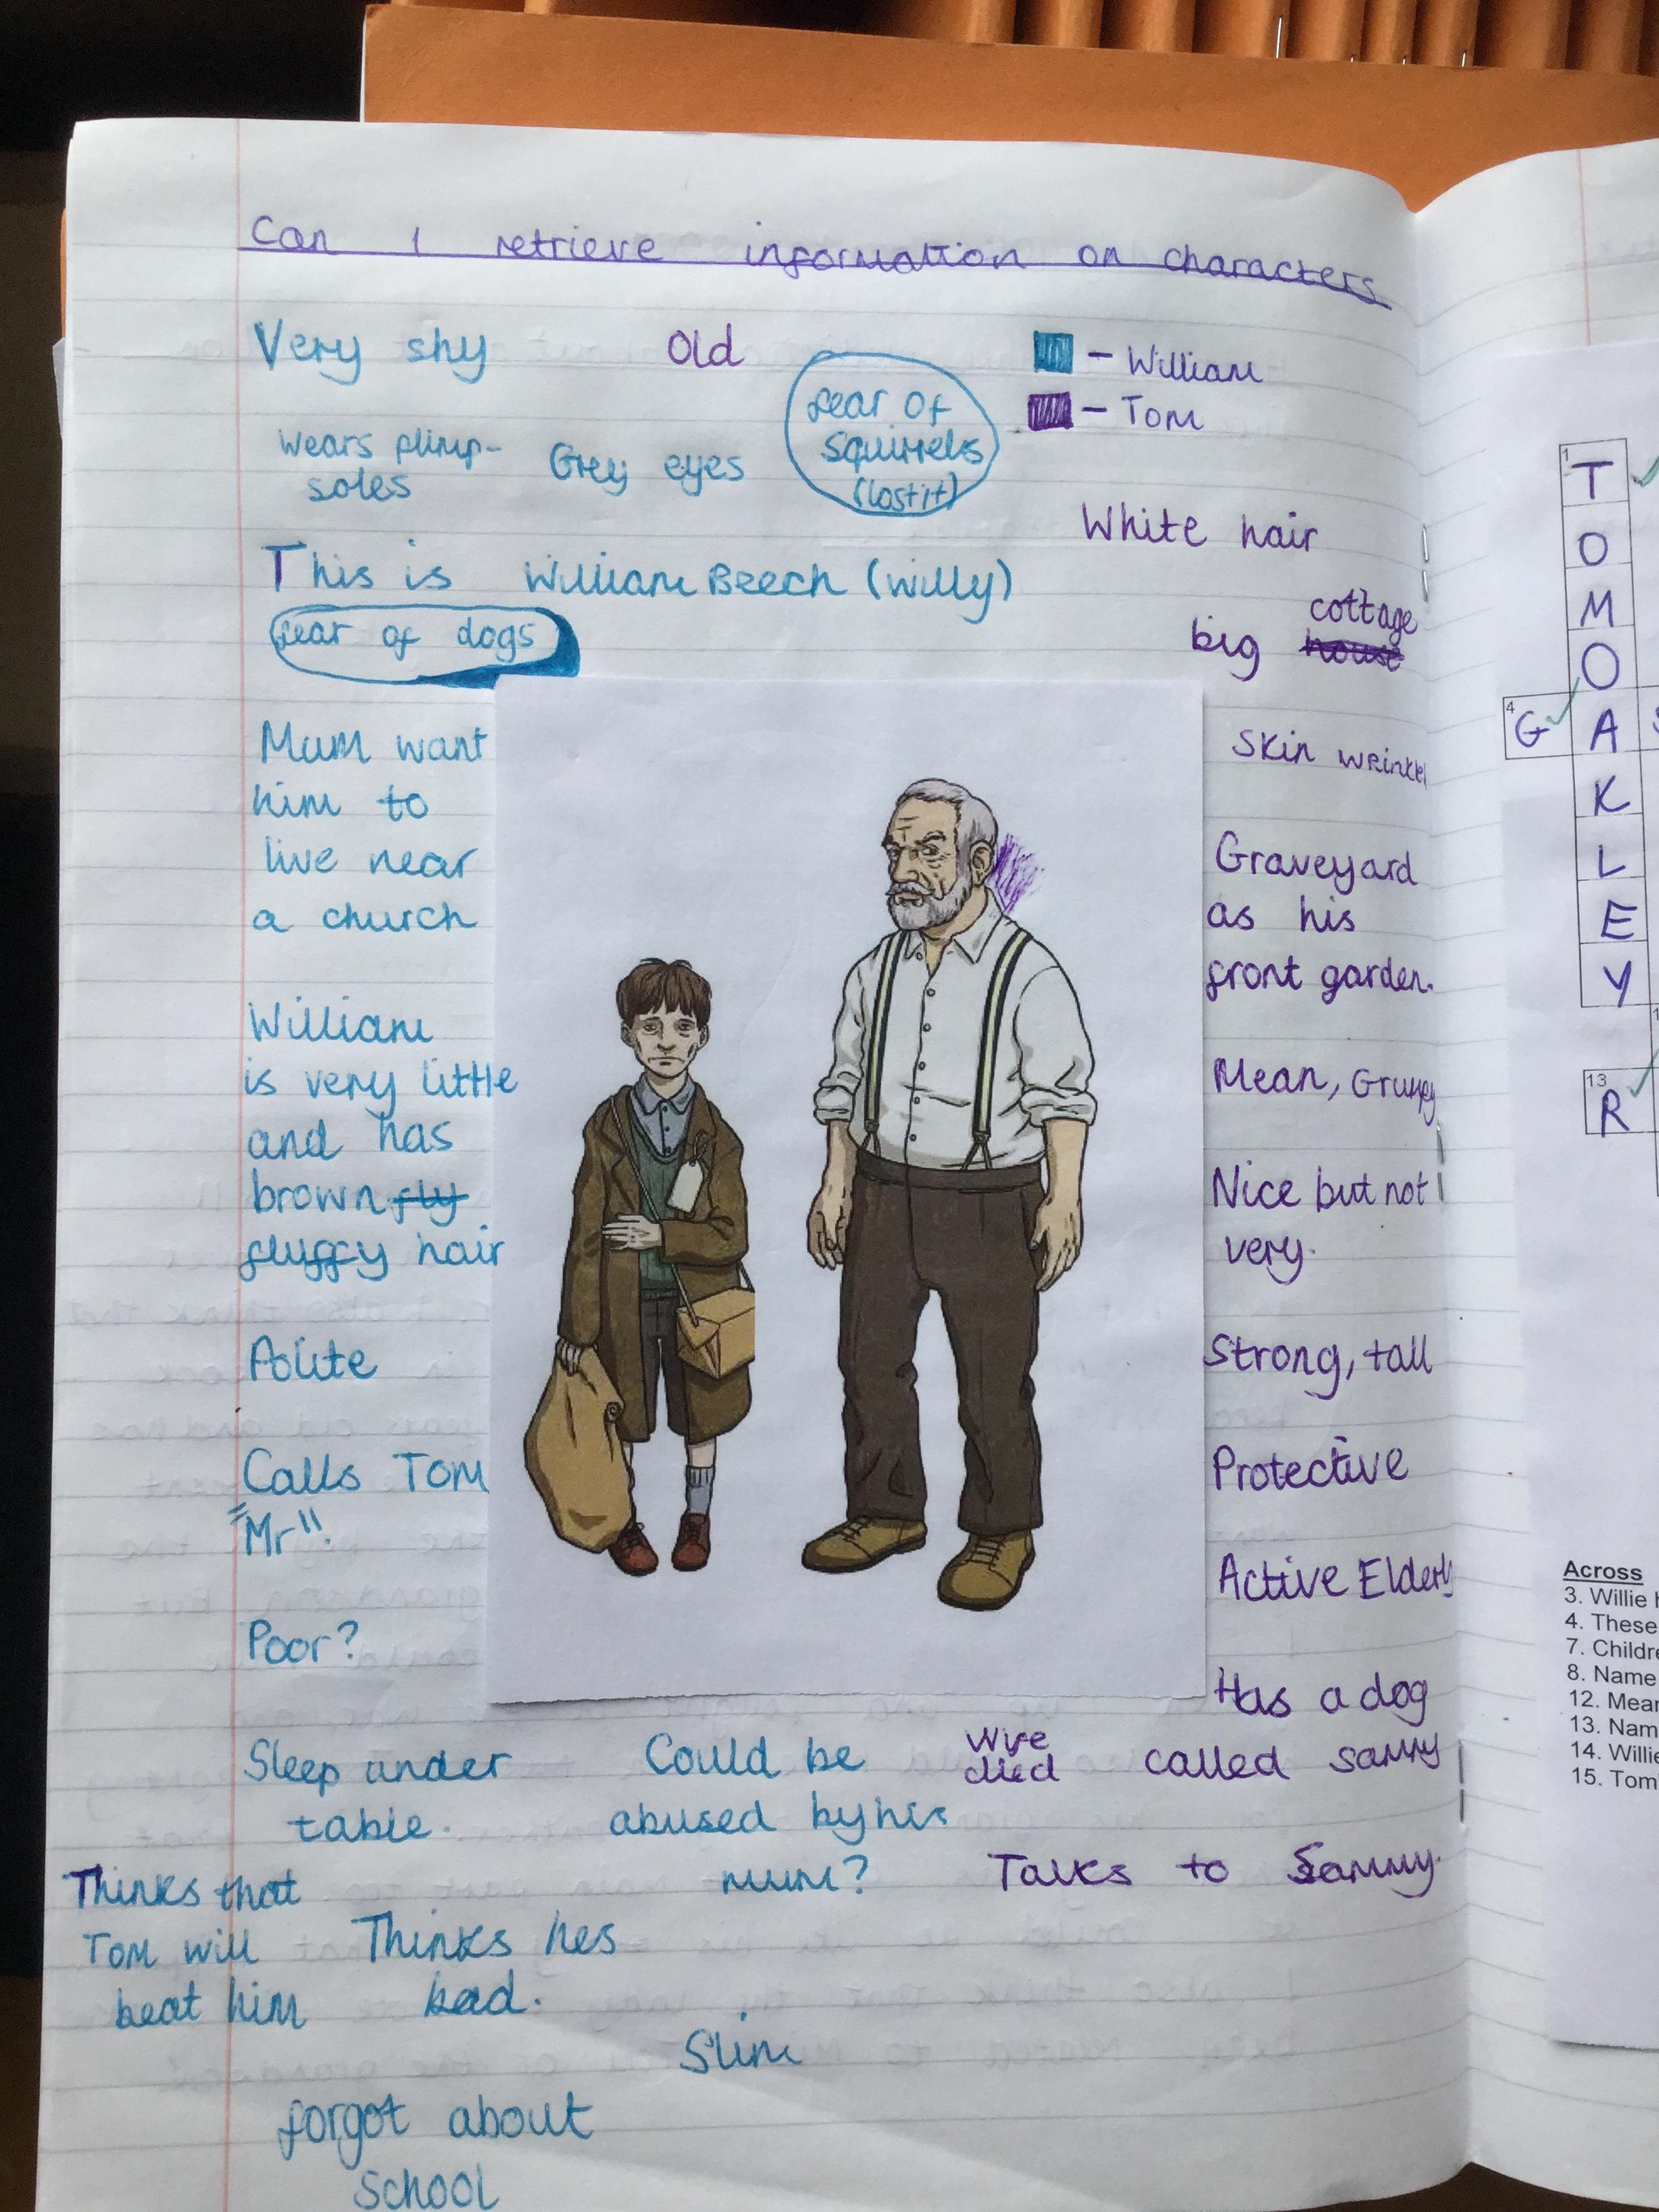 Can I retrieve information on characters
Very shy
Old
fear of
squirrels
(lost it)
– William
– Tom
wears plimp-
soles
Grey eyes
White hair
This is William Beech (Willy)
fear of dogs
cottage
big house
Mum want
him to
live near
a church
William
is very little
and has
brown fly
fluffy hair
Polite
Calls Tom
"Mr".
Poor?
Sleep under
table.
Thinks that
Tom will
beat him
Thinks hes
bad.
Could be
abused by his
mum?
Slim
forgot about
school
Skin wrinkl
Graveyard
as his
front garden.
Mean, Grumpy
Nice but not
very.
Strong, tall
Protective
Active Elderly
Has a dog
called sammy
wife
died
Talks to Sammy.
1
T
O
M
O
4
G
A
K
L
E
Y
13
R
Across
3. Willie
4. These
7. Childre
8. Name
12. Mear
13. Nam
14. Willie
15. Tom